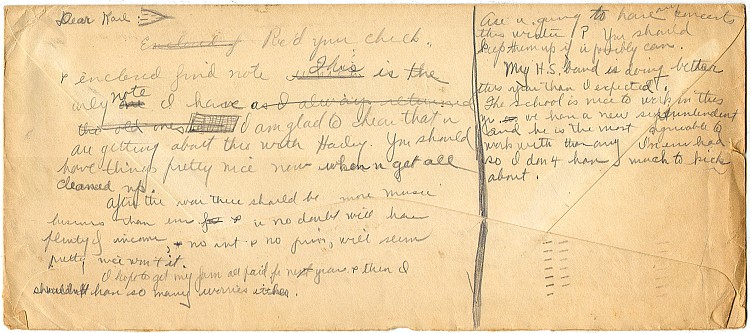 Dear Karl:
Enclosed f Rec'd your check.
& enclosed find note This is the
only note I have as I always returned
the old ones I am glad to hear that u
are getting about thru with Harley. You should
have things pretty nice now when u get all
cleaned up.
After the war there should be more music
business than ever for & u no doubt will have
plenty of income, & no int & no prin, will seem
pretty nice won't it.
I hope to get my farm all paid for next year & then I
shouldn't have so many worries either.
Are u going to have any concerts
this winter? You should
keep them up if u possibly can.
My H.S. band is doing better
this year than I expected.
The school is nice to work in this
yr we have a new superintendent
and he is the most agreeable to
work with than any I've ever had
so I don't have much to kick
about.